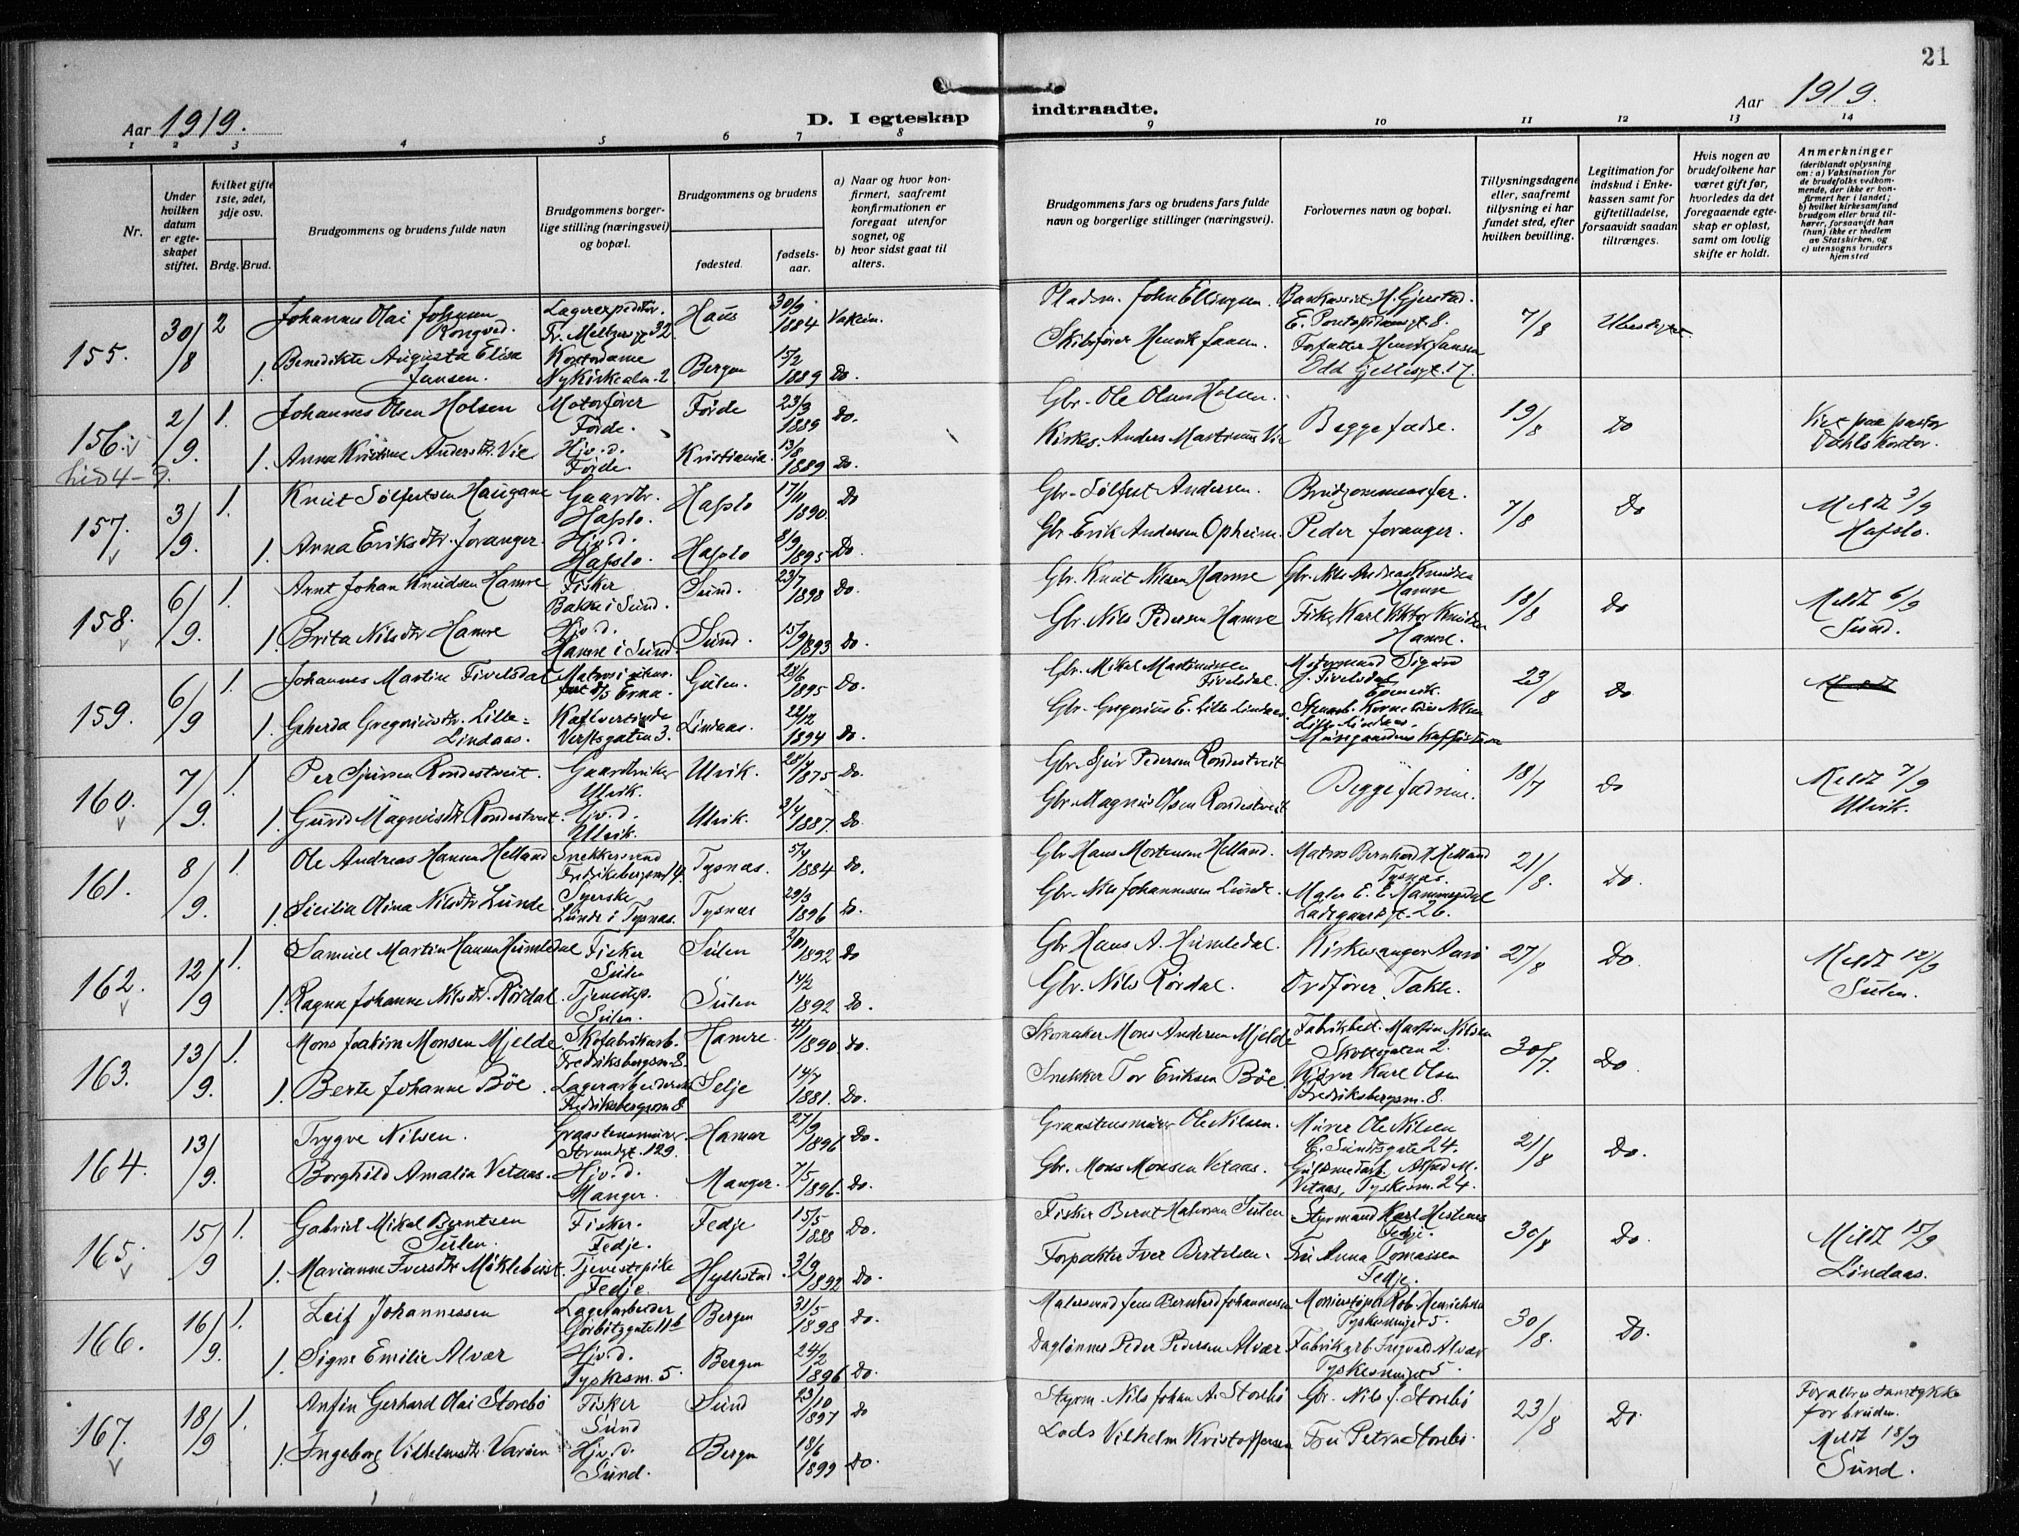 21
Aar 1919.
D. I egteskap indtraadte.
Aar 1919.
1 2 3 4 5 6 7 8 9 10 11 12 13 14
Nr.
Under hvilken datum er egteskapet stiftet.
hvilket gifte 1ste, 2det, 3dje osv.
Brdg. Brud.
Brudgommens og brudens fulde navn
Brudgommens borgerlige stilling (næringsvei) og bopæl.
Brudgommens og brudens
fødested.
fødselsaar.
a) Naar og hvor konfirmert, saafremt konfirmationen er foregaat utenfor sognet, og
b) hvor sidst gaat til alters.
Brudgommens fars og brudens fars fulde navn og borgerlige stillinger (næringsvei).
Forlovernes navn og bopæl.
Tillysningsdagene eller, saafremt tillysning ei har fundet sted, efter hvilken bevilling.
Legitimation for indskud i Enkekassen samt for giftetilladelse, forsaavidt saadan tiltrænges.
Hvis nogen av brudefolkene har været gift før, hvorledes da det foregaaende egteskap er opløst, samt om lovlig skifte er holdt.
Anmerkninger
(deriblandt oplysning om: a) Vaksination for de brudefolks vedkommende, der ikke er konfirmert her i landet; b) hvilket kirkesamfund brudgom eller brud tilhører, forsaavidt han (hun) ikke er medlem av Statskirken, og c) utensogns bruders hjemsted
155. 30/8 2 Johannes Olai Johnsen Rongved. Lagerexpeditør Fr. Meltzersgt 32 Haus 30/9 1884 Vaksin. Pladsm. John Ellingsen. 7/8
1. Benedikte Augusta Elisa Jansen. Kontordame Nykirkealm. 2 Bergen 15/2 1889 Do. Skibsfører Henrik Jansen. Forfatter Henrik Jansen
156. 2/9. 1. Johannes Olsen Holsen Motorfører Førde. Førde 23/3 1889 Do. Gbr. Ole Olsen Holsen. Begge fædre. 19/8 Do Viet paa pastor Dahls kontor.
1. Anna Kristine Andersdtr. Vie Hjv.d. Førde. Kristiania 13/8 1889 Do. Kirkes. Anders Martinus Vie
157. 3/9. 1. Knut Sølfestsen Haugane Gaardbr. Hafslo. Hafslo 17/11 1890. Do Gbr. Sølfest Andersen. Brudgommens far. 7/8 Do Meldt 3/9 Hafslo.
1. Anna Eriksdtr. Joranger. Hjv.d. Hafslo. Hafslo 8/9 1895 Do. Gbr. Erik Andersen Opheim. Peder Joranger.
158. 6/9. 1. Arnt Johan Knudsen Hamre Fisker Bakke i Sund. Sund. 23/7 1898 Do. Gbr. Knut Nilsen Hamre Gbr. Nils Andreas Knudsen Hamre 18/8 Do Meldt 6/9 Sund.
1. Brita Nilsdtr Hamre Hjv.d. Hamre i Sund. Sund. 15/9 1893 Do. Gbr. Nils Pedersen Hamre Fisker Karl Viktor Knudsen Hamre.
159. 6/9 1. Johannes Martin Fivelsdal Gulen. 28/6 1895 Do. Gbr. Mikal Martinussen Fivelsdal. 23/8 Do.
1. Gerherda Gregoriusdtr. Lille-Lindaas. Verftsgaten 3. Lindaas 22/12 1894 Do. Gbr. Gregorius E. Lille Lindaas
160. 7/9. 1. Per Sjursen Rondestveit. Gaardbruker Ulvik. Ulvik. 28/4 1875 Do. Gbr. Sjur Pedersen Rondestveit Begge fædrene. 18/7 Do Meldt 7/9 Ulvik.
1. Gurid Magnusdtr Rondestveit Hjv.d. Ulvik. Ulvik. 3/4 1887. Do. Gbr. Magnus Olsen Rondestveit
161. 8/9. 1. Ole Andreas Hansen Helland Snekkersvend Fredriksbergsm 14. Tysnæs. 5/4 1884 Do. Gbr. Hans Mortensen Helland. Matros Bernhard H Helland Tysnæs. 21/8. Do.
1. Sicilia Olina Nilsdtr Lunde Syerske Lunde i Tysnæs. Tysnæs 29/3 1896 Do. Gbr. Nils Johannessen Lunde. Maler E. E. Ladegaardsgt. 26.
162. 12/9 1. Samuel Martin Hansen Humledal Fisker Sulen Sulen 1892 Do Gbr Hans A. Humledal. Kirkesanger Aarø 27/8 Do. Meldt 12/9 Sulen.
1. Ragna Johanne Nilsdtr. Rørdal Tjenestep. Sulen. Sulen 14/2 1892 Do. Gbr. Nils Rørdal. Ordfører Takle.
163. 13/9. 1. Mons Joakim Monsen Mjelde Skofabrikarb. Fredriksbergsm 8. Hamre. 1890 Do. Skomaker Mons Andersen Mjelde Fabrikbest. Martin Nilsen Skottegaten 2. 30/7. Do.
1. Berte Johanne Bøe Lagerarbeiderske Fredriksbergsm 8. Selje 14/7 1881. Do. Snekker Tor Eriksen Bøe Karl Olsen Fredriksbergsm. 8.
164. 13/9. Trygve Nilsen. Graastensmurer Strandgt. 129. Hamre 27/9 1896 Do. Graastensmurer Ole Nilsen. Murer Ole Nilsen E. Sundtsgate 24. 21/8 Do.
Borghild Amalia Vetaas. Hjv.d. Manger. Manger. 7/5 1896. Do. Gbr. Mons Monsen Vetaas. Guldsmedarb. Alfred M. Vetaas, Tyskesm. 24.
165. 15/9 1. Gabriel Mikal Berntsen Sulen. Fisker. Fedje. Fedje 15/5 1888 Do. Fisker Bernt Halvorsen Sulen Styrmand Karl Hestenes Fedje. 30/8 Do. Meldt 15/9 Lindaas.
1. Marianne Iversdtr Møklebust Tjenestepike Fedje. Hyllestad. 3/9 1892 Do. Forpakter Iver Bertelsen. Fru Anna Tomassen Fedje.
166. 16/9. 1. Leif Johannessen Lagerarbeider Gørbitzgate 11b Bergen 31/5 1898 Do. Malersvend Jens Bernhard Johannessen Tyskesmuget 5. 30/8. Do.
1. Signe Emilie Alvær Hjv.d. Tyskesm. 5 Bergen 24/2 1896 Do. Daglønner Peder Pedersen Alvær Fabrikarb Ingvald Alvær Tyskesmuget 5.
167. 18/9 1. Anfin Gerhard Olai Storebø Fisker Sund Sund 23/10 1897 Do Styrm. Nils Johan A. Storebø Gbr. Nils J. Storebø 23/8 Do. Forældrensamtykke for bruden.
1. Ingeborg Vilhelmsdtr. Varøen Hjv.d. Sund. Bergen 18/6 1899 Do. Lods Vilhelm Kristoffersen Fru Petra Storebø. Meldt 18/9 Sund.